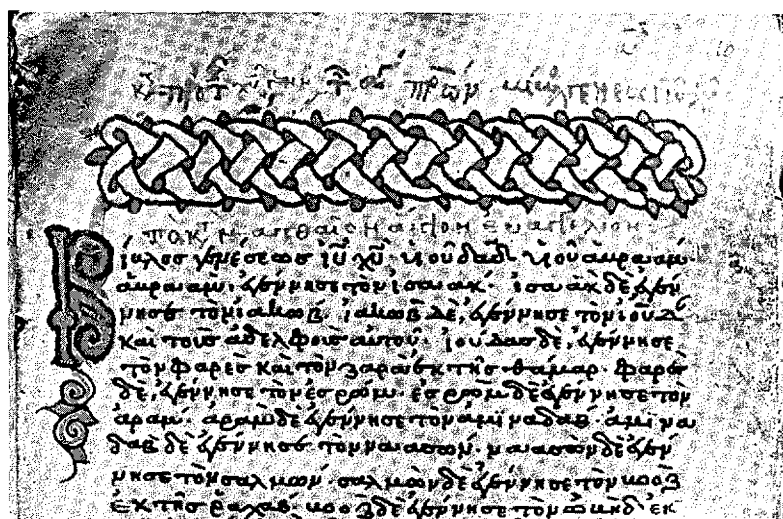 το κατὰ ματθαῖον ἅγιον εὐαγγέλιον
Βίβλος γενέσεως ιυ χυ υιου δαδ υιου αβρααμ·
ἀβρααμ· ἐγέννησε τὸν ισαακ· ισαακ δὲ ἐγέν
νησε τὸν ιακωβ· ιακωβ δὲ, ἐγέννησε τὸν ιούδα
καὶ τοὺς ἀδελφοὺς αὐτοῦ· ιούδας δὲ, ἐγέννησε
τὸν φαρὲς καὶ τὸν ζαρὰ ἐκ τῆς θάμαρ· φαρὲς
δὲ, ἐγέννησε τὸν ἐσρώμ· ἐσρὼμ δὲ ἐγέννησε τὸν
ἀράμ· ἀρὰμ δὲ ἐγέννησε τὸν ἀμιναδάβ· ἀμινα
δὰβ δὲ ἐγέννησε τὸν ναασών· ναασὼν δὲ ἐγέν
νησε τὸν σαλμών· σαλμὼν δὲ ἐγέννησε τὸν βοὸζ
ἐκ τῆς ῥαχάβ· βοὸζ δὲ ἐγέννησε τὸν ὠβὴδ ἐκ